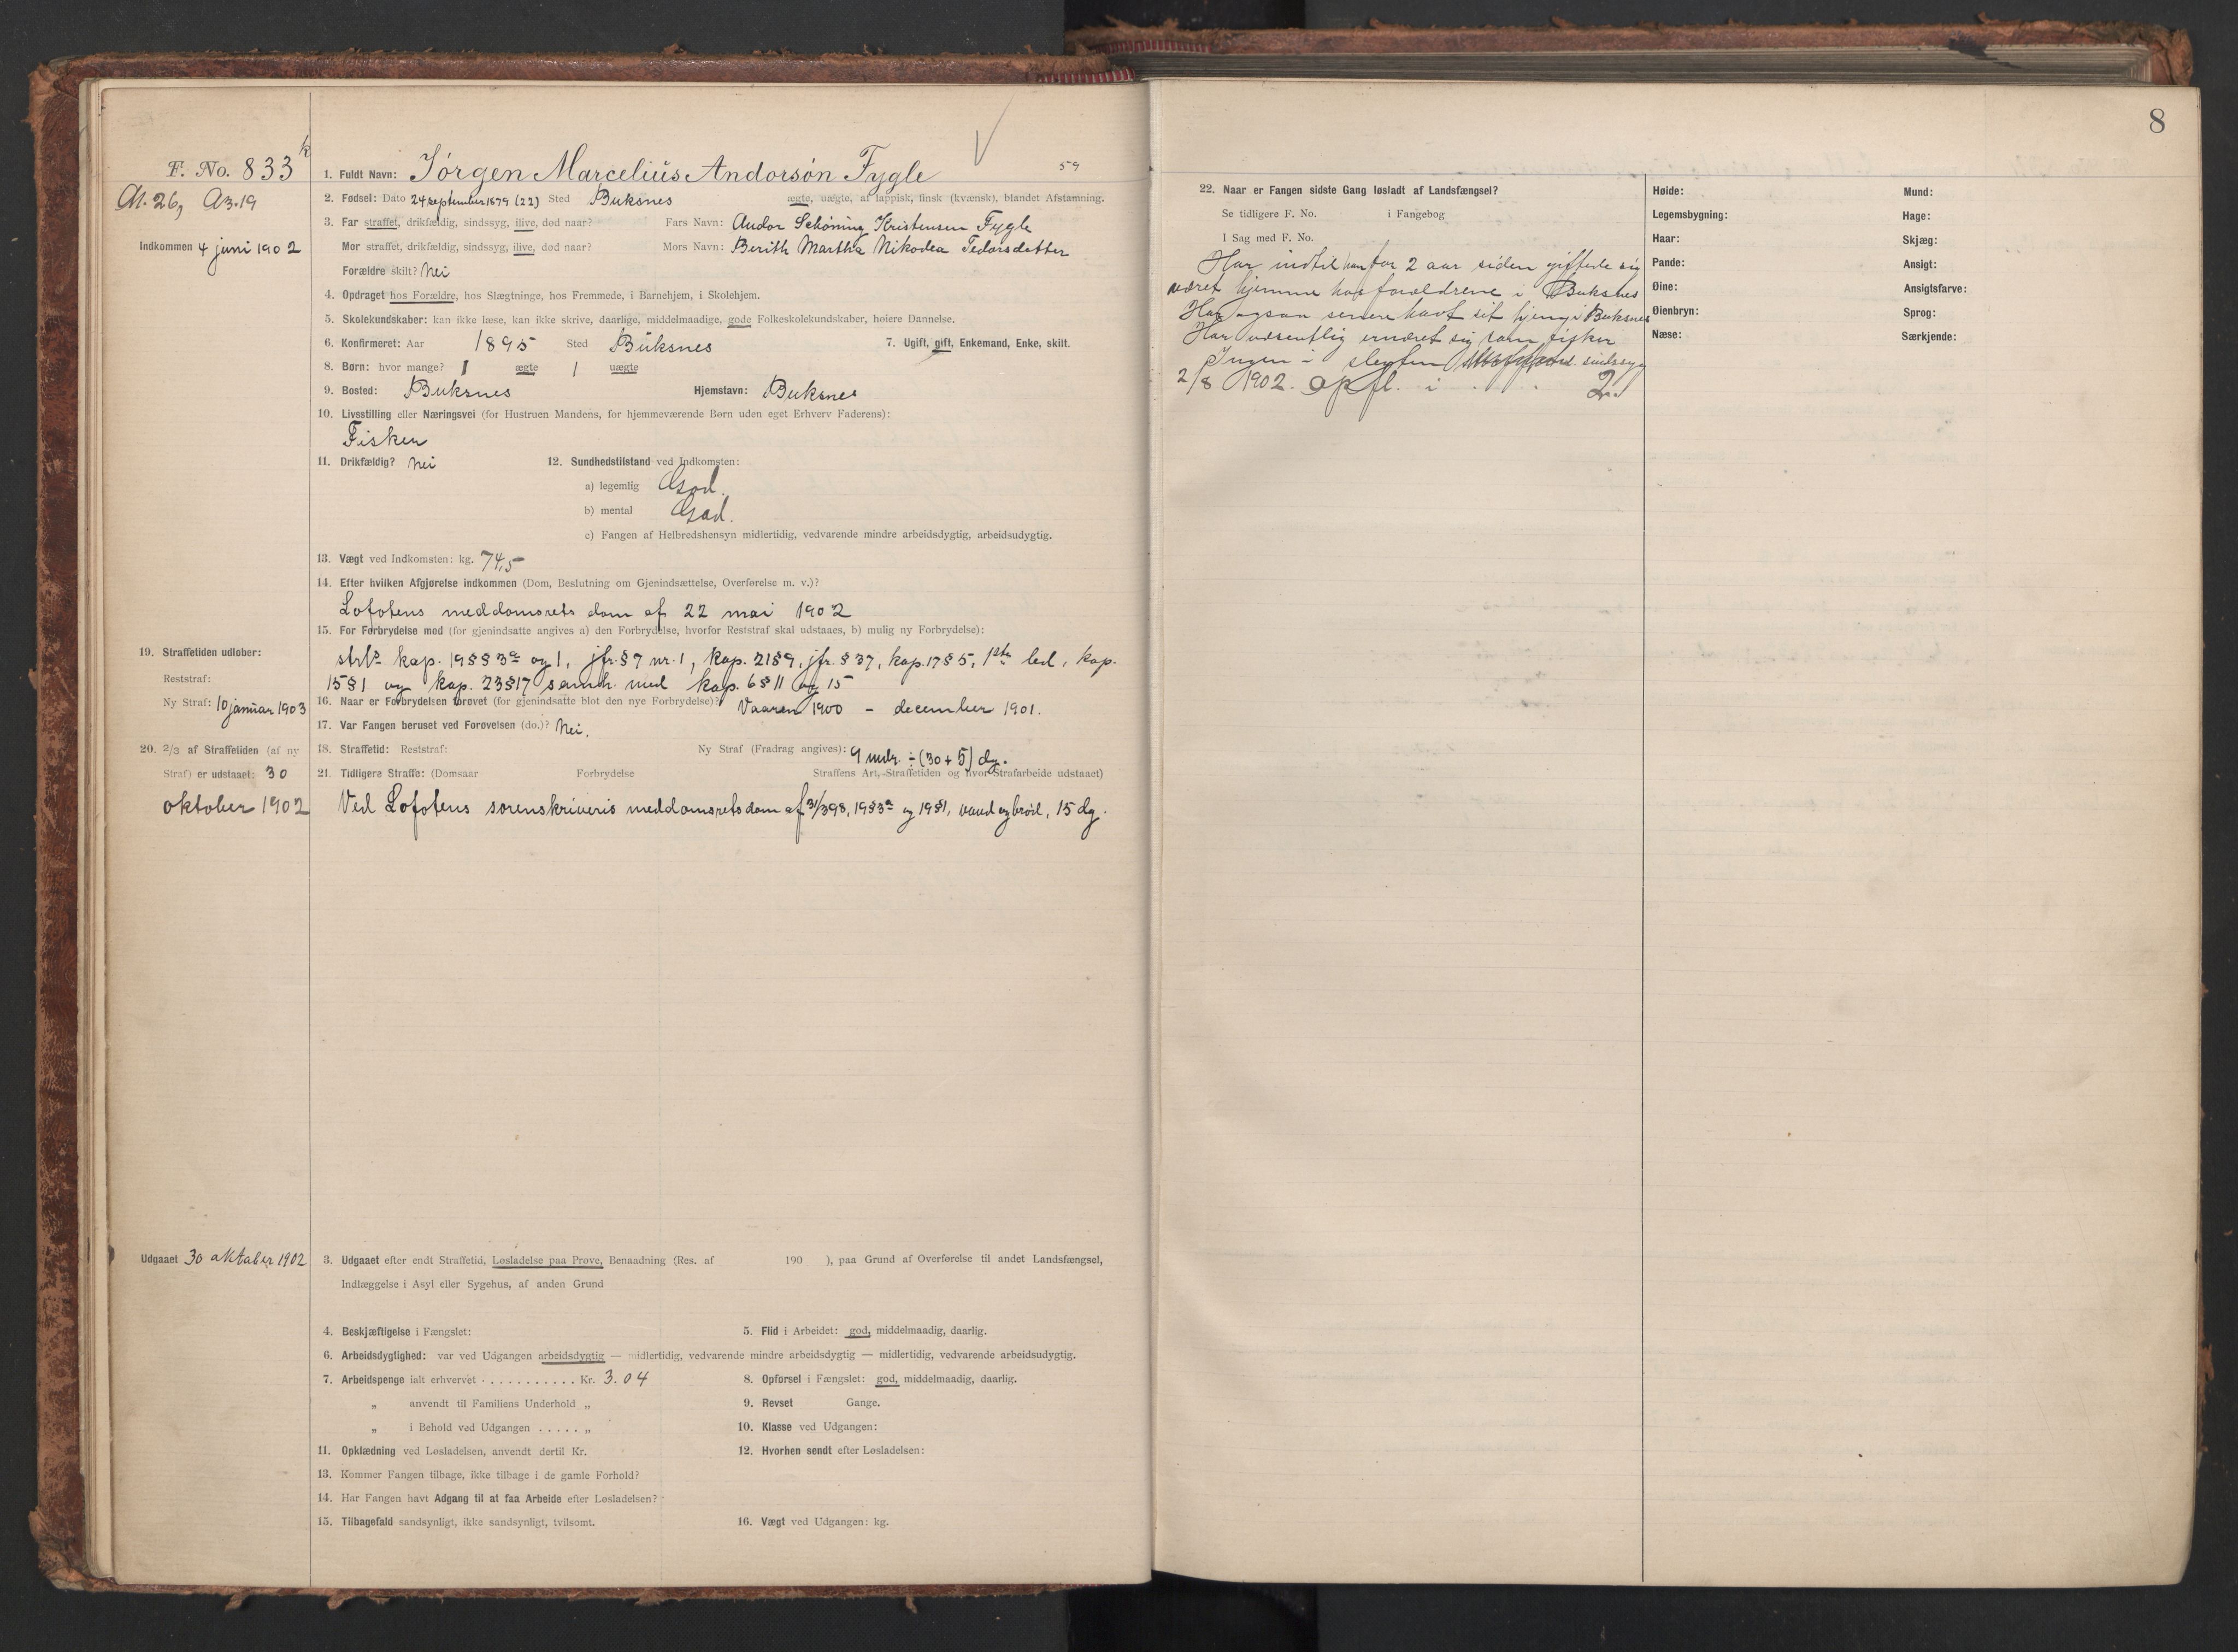 8
F. No. 833
1. Fuldt Navn: Jørgen Marcelius Andorsøn Fygle 59
A1. 26, A3.19
2. Fødsel: Dato 24 september 1879 (22) Sted Buksnes ægte, uægte, af lappisk, finsk (kvænsk), blandet Afstamning.
3. Far straffet, drikfældig, sindssyg, ilive, død naar? Fars Navn: Andor Schøning Kristensen Fygle
Indkommen 4 juni 1902
Mor straffet, drikfældig, sindssyg, ilive, død naar? Mors Navn: Berith Martha Nikodea Tedorsdatter
Forældre skilt? Nei
4. Opdraget hos Forældre, hos Slægtninge, hos Fremmede, i Barnehjem, i Skolehjem.
5. Skolekundskaber: kan ikke læse, kan ikke skrive, daarlige, middelmaadige, gode Folkeskolekundskaber, høiere Dannelse.
6. Konfirmeret: Aar 1895 Sted Buksnes 7. Ugift, gift, Enkemand, Enke, skilt.
8. Børn: hvor mange? 1 ægte 1 uægte
9. Bosted: Buksnes Hjemstavn: Buksnes
10. Livsstilling eller Næringsvei (for Hustruen Mandens, for hjemmeværende Børn uden eget Erhverv Faderens):
Fisker
11. Drikfældig? Nei 12. Sundhedstilstand ved Indkomsten:
a) legemlig God.
b) mental God.
c) Fangen af Helbredshensyn midlertidig, vedvarende mindre arbeidsdygtig, arbeidsudygtig.
13. Vægt ved Indkomsten: kg. 74,5
14. Efter hvilken Afgjørelse indkommen (Dom, Beslutning om Gjenindsættelse, Overførelse m. v.)?
Lofotens meddomsrets dom af 22 mai 1902
15. For Forbrydelse mod (for gjenindsatte angives a) den Forbrydelse, hvorfor Reststraf skal udstaaes, b) mulig ny Forbrydelse):
19. Straffetiden udløber:
strl. kap. 19 §§ 3a og 1, jfr. § 7 nr. 1, kap. 21 § 9, jfr. § 37, kap. 17 § 5, 1ste led, kap.
Reststraf:
15 § 1 og kap. 23 § 17 samh. med kap. 6 § 11 og 15
Ny Straf: 10 januar 1903
16. Naar er Forbrydelsen forøvet (for gjenindsatte blot den nye Forbrydelse)? Vaaren 1900 – december 1901.
17. Var Fangen beruset ved Forøvelsen (do.)? Nei.
20. 2/3 af Straffetiden (af ny
18. Straffetid: Reststraf: Ny Straf (Fradrag angives): 9 mdr. ÷ (30 + 5) dg.
Straf) er udstaaet: 30
21. Tidligere Straffe: (Domsaar Forbrydelse Straffens Art, Straffetiden og hvor Strafarbeide udstaaet)
oktober 1902
Ved Lofotens sorenskriveris meddomsrets dom af 31/3 98, 19 § 3a og 19 § 1, vand og brød, 15 dg.
Udgaaet 30 oktober 1902
3. Udgaaet efter endt Straffetid, Løsladelse paa Prøve, Benaadning (Res. af 190 ), paa Grund af Overførelse til andet Landsfængsel,
Indlæggelse i Asyl eller Sygehus, af anden Grund
4. Beskjæftigelse i Fængslet: 5. Flid i Arbeidet: god, middelmaadig, daarlig.
6. Arbeidsdygtighed: var ved Udgangen arbeidsdygtig — midlertidig, vedvarende mindre arbeidsdygtig — midlertidig, vedvarende arbeidsudygtig.
7. Arbeidspenge ialt erhvervet . . . . . . . . . . . Kr. 3.04 8. Opførsel i Fængslet: god, middelmaadig, daarlig.
„ anvendt til Familiens Underhold „ 9. Revset Gange.
„ i Behold ved Udgangen . . . . . „ 10. Klasse ved Udgangen:
11. Opklædning ved Løsladelsen, anvendt dertil Kr. 12. Hvorhen sendt efter Løsladelsen:
13. Kommer Fangen tilbage, ikke tilbage i de gamle Forhold?
14. Har Fangen havt Adgang til at faa Arbeide efter Løsladelsen?
15. Tilbagefald sandsynligt, ikke sandsynligt, tvilsomt. 16. Vægt ved Udgangen: kg.
22. Naar er Fangen sidste Gang løsladt af Landsfængsel?
Se tidligere F. No. i Fangebog
I Sag med F. No.
Har indtil han for 2 aar siden giftede sig
været hjemme hos forældrene i Buksnes
Har ogsaa senere havt sit hjem i Buksnes
Har væsentlig ernæret sig som fisker
Ingen i slegten sindssyg
2/8 1902. Opfl. i 2.
Høide: Mund:
Legemsbygning: Hage:
Haar: Skjæg:
Pande: Ansigt:
Øine: Ansigtsfarve:
Øienbryn: Sprog:
Næse: Særkjende: